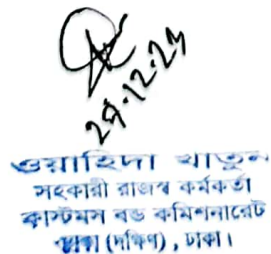 ২৭.১২.২৩
ওয়াহিদা খাতুন
সহকারী রাজস্ব কর্মকর্তা
কাস্টমস বন্ড কমিশনারেট
ঢাকা (দক্ষিণ), ঢাকা।